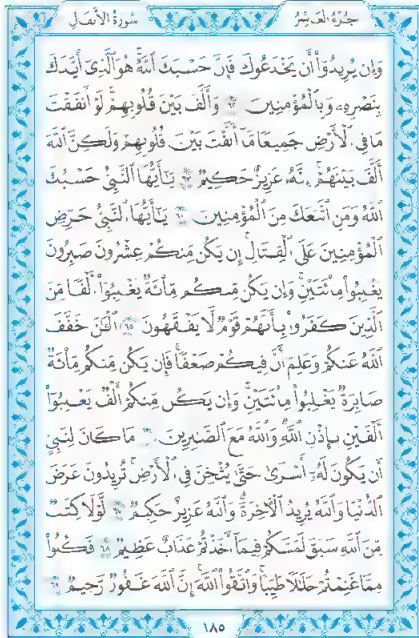 سورة الأنفال
جزء العاشر
وَإِن يُرِيدُوٓا۟ أَن يَخْدَعُوكَ فَإِنَّ حَسْبَكَ ٱللَّهُ هُوَ ٱلَّذِىٓ أَيَّدَكَ
بِنَصْرِهِۦ وَبِٱلْمُؤْمِنِينَ ٦٢ وَأَلَّفَ بَيْنَ قُلُوبِهِمْ لَوْ أَنفَقْتَ
مَا فِى ٱلْأَرْضِ جَمِيعًا مَّآ أَلَّفْتَ بَيْنَ قُلُوبِهِمْ وَلَـٰكِنَّ ٱللَّهَ
أَلَّفَ بَيْنَهُمْ إِنَّهُۥ عَزِيزٌ حَكِيمٌ ٦٣ يَـٰٓأَيُّهَا ٱلنَّبِىُّ حَسْبُكَ
ٱللَّهُ وَمَنِ ٱتَّبَعَكَ مِنَ ٱلْمُؤْمِنِينَ ٦٤ يَـٰٓأَيُّهَا ٱلنَّبِىُّ حَرِّضِ
ٱلْمُؤْمِنِينَ عَلَى ٱلْقِتَالِ إِن يَكُن مِّنكُمْ عِشْرُونَ صَـٰبِرُونَ
يَغْلِبُوا۟ مِا۟ئَتَيْنِ وَإِن يَكُن مِّنكُم مِّا۟ئَةٌ يَغْلِبُوٓا۟ أَلْفًا مِّنَ
ٱلَّذِينَ كَفَرُوا۟ بِأَنَّهُمْ قَوْمٌ لَّا يَفْقَهُونَ ٦٥ ٱلْـَٔـٰنَ خَفَّفَ
ٱللَّهُ عَنكُمْ وَعَلِمَ أَنَّ فِيكُمْ ضَعْفًا فَإِن يَكُن مِّنكُم مِّا۟ئَةٌ
صَابِرَةٌ يَغْلِبُوا۟ مِا۟ئَتَيْنِ وَإِن يَكُن مِّنكُمْ أَلْفٌ يَغْلِبُوٓا۟
أَلْفَيْنِ بِإِذْنِ ٱللَّهِ وَٱللَّهُ مَعَ ٱلصَّـٰبِرِينَ ٦٦ مَا كَانَ لِنَبِىٍّ
أَن يَكُونَ لَهُۥٓ أَسْرَىٰ حَتَّىٰ يُثْخِنَ فِى ٱلْأَرْضِ تُرِيدُونَ عَرَضَ
ٱلدُّنْيَا وَٱللَّهُ يُرِيدُ ٱلْـَٔاخِرَةَ وَٱللَّهُ عَزِيزٌ حَكِيمٌ ٦٧ لَّوْلَا كِتَـٰبٌ
مِّنَ ٱللَّهِ سَبَقَ لَمَسَّكُمْ فِيمَآ أَخَذْتُمْ عَذَابٌ عَظِيمٌ ٦٨ فَكُلُوا۟
مِمَّا غَنِمْتُمْ حَلَـٰلًا طَيِّبًا وَٱتَّقُوا۟ ٱللَّهَ إِنَّ ٱللَّهَ غَفُورٌ رَّحِيمٌ ٦٩
١٨٥